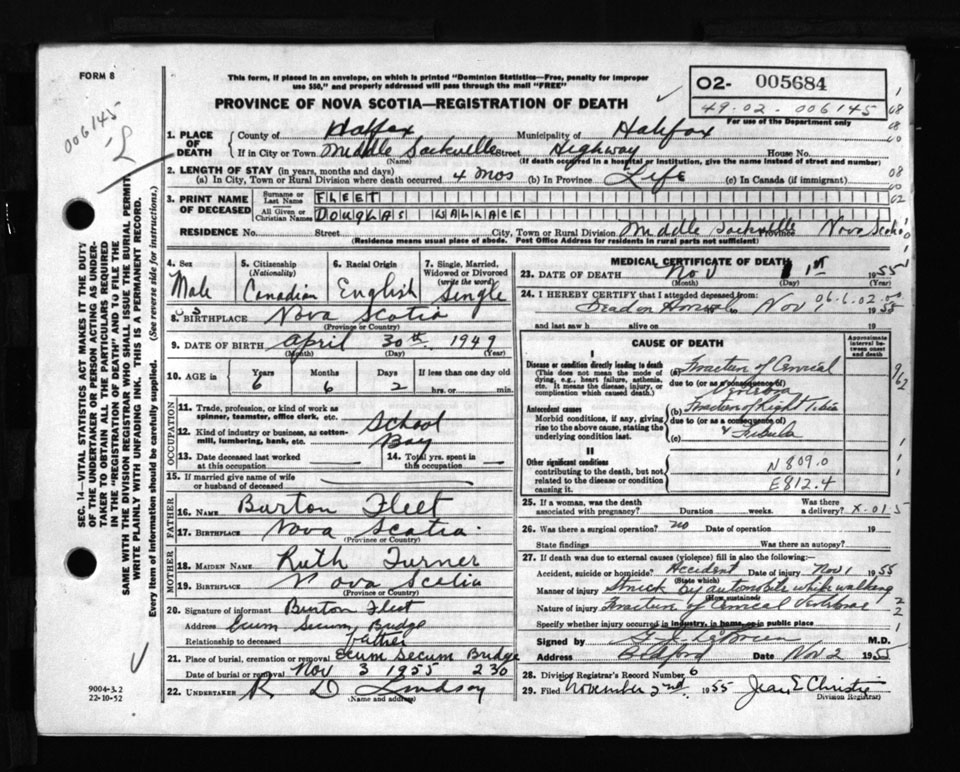 FORM 8
This form, if placed in an envelope, on which is printed "Dominion Statistics—Free, penalty for improper
use $50," and properly addressed will pass through the mail "FREE"
O2- 005684
49-02-006145
For use of the Department only
006145
PROVINCE OF NOVA SCOTIA—REGISTRATION OF DEATH
1. PLACE OF DEATH County of Halifax Municipality of Halifax
If in City or Town Middle Sackville Street Highway House No.
(Name) (If death occurred in a hospital or institution, give the name instead of street and number)
2. LENGTH OF STAY (in years, months and days)
(a) In City, Town or Rural Division where death occurred 4 mos (b) In Province Life (c) In Canada (if immigrant)
3. PRINT NAME OF DECEASED Surname or Last Name FLEET
All Given or Christian Names DOUGLAS WALLACE
RESIDENCE No. Street City, Town or Rural Division Middle Sackville Province Nova Scotia
(Residence means usual place of abode. Post Office Address for residents in rural parts not sufficient)
4. Sex Male
5. Citizenship (Nationality) Canadian
6. Racial Origin English
7. Single, Married, Widowed or Divorced (write the word) Single
8. BIRTHPLACE Nova Scotia
(Province or Country)
9. DATE OF BIRTH April 30th 1949
(Month) (Day) (Year)
10. AGE in Years 6 Months 6 Days 2 If less than one day old
hrs. or min.
OCCUPATION
11. Trade, profession, or kind of work as spinner, teamster, office clerk, etc. School
12. Kind of industry or business, as cotton-mill, lumbering, bank, etc. Boy
13. Date deceased last worked at this occupation —
14. Total yrs. spent in this occupation —
15. If married give name of wife or husband of deceased —
FATHER
16. NAME Burton Fleet
17. BIRTHPLACE Nova Scotia
(Province or Country)
MOTHER
18. MAIDEN NAME Ruth Turner
19. BIRTHPLACE Nova Scotia
(Province or Country)
20. Signature of informant Burton Fleet
Address Ecum Secum Bridge
Relationship to deceased Father
21. Place of burial, cremation or removal Ecum Secum Bridge
Date of burial or removal Nov 3 1955 2 30
22. UNDERTAKER R D Lindsay
(Name and address)
MEDICAL CERTIFICATE OF DEATH
23. DATE OF DEATH Nov 1st 1955
(Month) (Day) (Year)
24. I HEREBY CERTIFY that I attended deceased from:
Dead on to Nov 1 1955
06.6.02.00
and last saw h alive on 19
CAUSE OF DEATH
Approximate interval between onset and death
I
Disease or condition directly leading to death
(This does not mean the mode of dying, e.g., heart failure, asthenia, etc. It means the disease, injury, or complication which caused death.)
(a) Fracture of Cervical
due to (or as a consequence of)
Antecedent causes
Morbid conditions, if any, giving rise to the above cause, stating the underlying condition last.
(b) Fracture of Right Tibia
due to (or as a consequence of)
(c) & Fibula
II
Other significant conditions
contributing to the death, but not related to the disease or condition causing it.
N 809.0
E812.4
25. If a woman, was the death associated with pregnancy? Duration weeks. Was there a delivery? X-01
26. Was there a surgical operation? no Date of operation 19
State findings Was there an autopsy?
27. If death was due to external causes (violence) fill in also the following:—
Accident, suicide or homicide? Accident Date of injury Nov 1 1955
(State which)
Manner of injury Struck by automobile while walking
(How sustained)
Nature of injury Fracture of Cervical Vertebrae
Specify whether injury occurred in industry, in home, or in public place
Signed by M.D.
Address Bedford Date Nov 2 1955
28. Division Registrar's Record Number 6
29. Filed November 2nd 1955 Jean E Christie
Division Registrar
SEC. 14—VITAL STATISTICS ACT MAKES IT THE DUTY
OF THE UNDERTAKER OR PERSON ACTING AS UNDER-
TAKER TO OBTAIN ALL THE PARTICULARS REQUIRED
IN THE "REGISTRATION OF DEATH" AND TO FILE THE
SAME WITH THE DIVISION REGISTRAR WHO SHALL ISSUE THE BURIAL PERMIT
WRITE PLAINLY WITH UNFADING INK. THIS IS A PERMANENT RECORD.
Every item of information should be carefully supplied. (See reverse side for instructions.)
9004-3.2
22-10-52